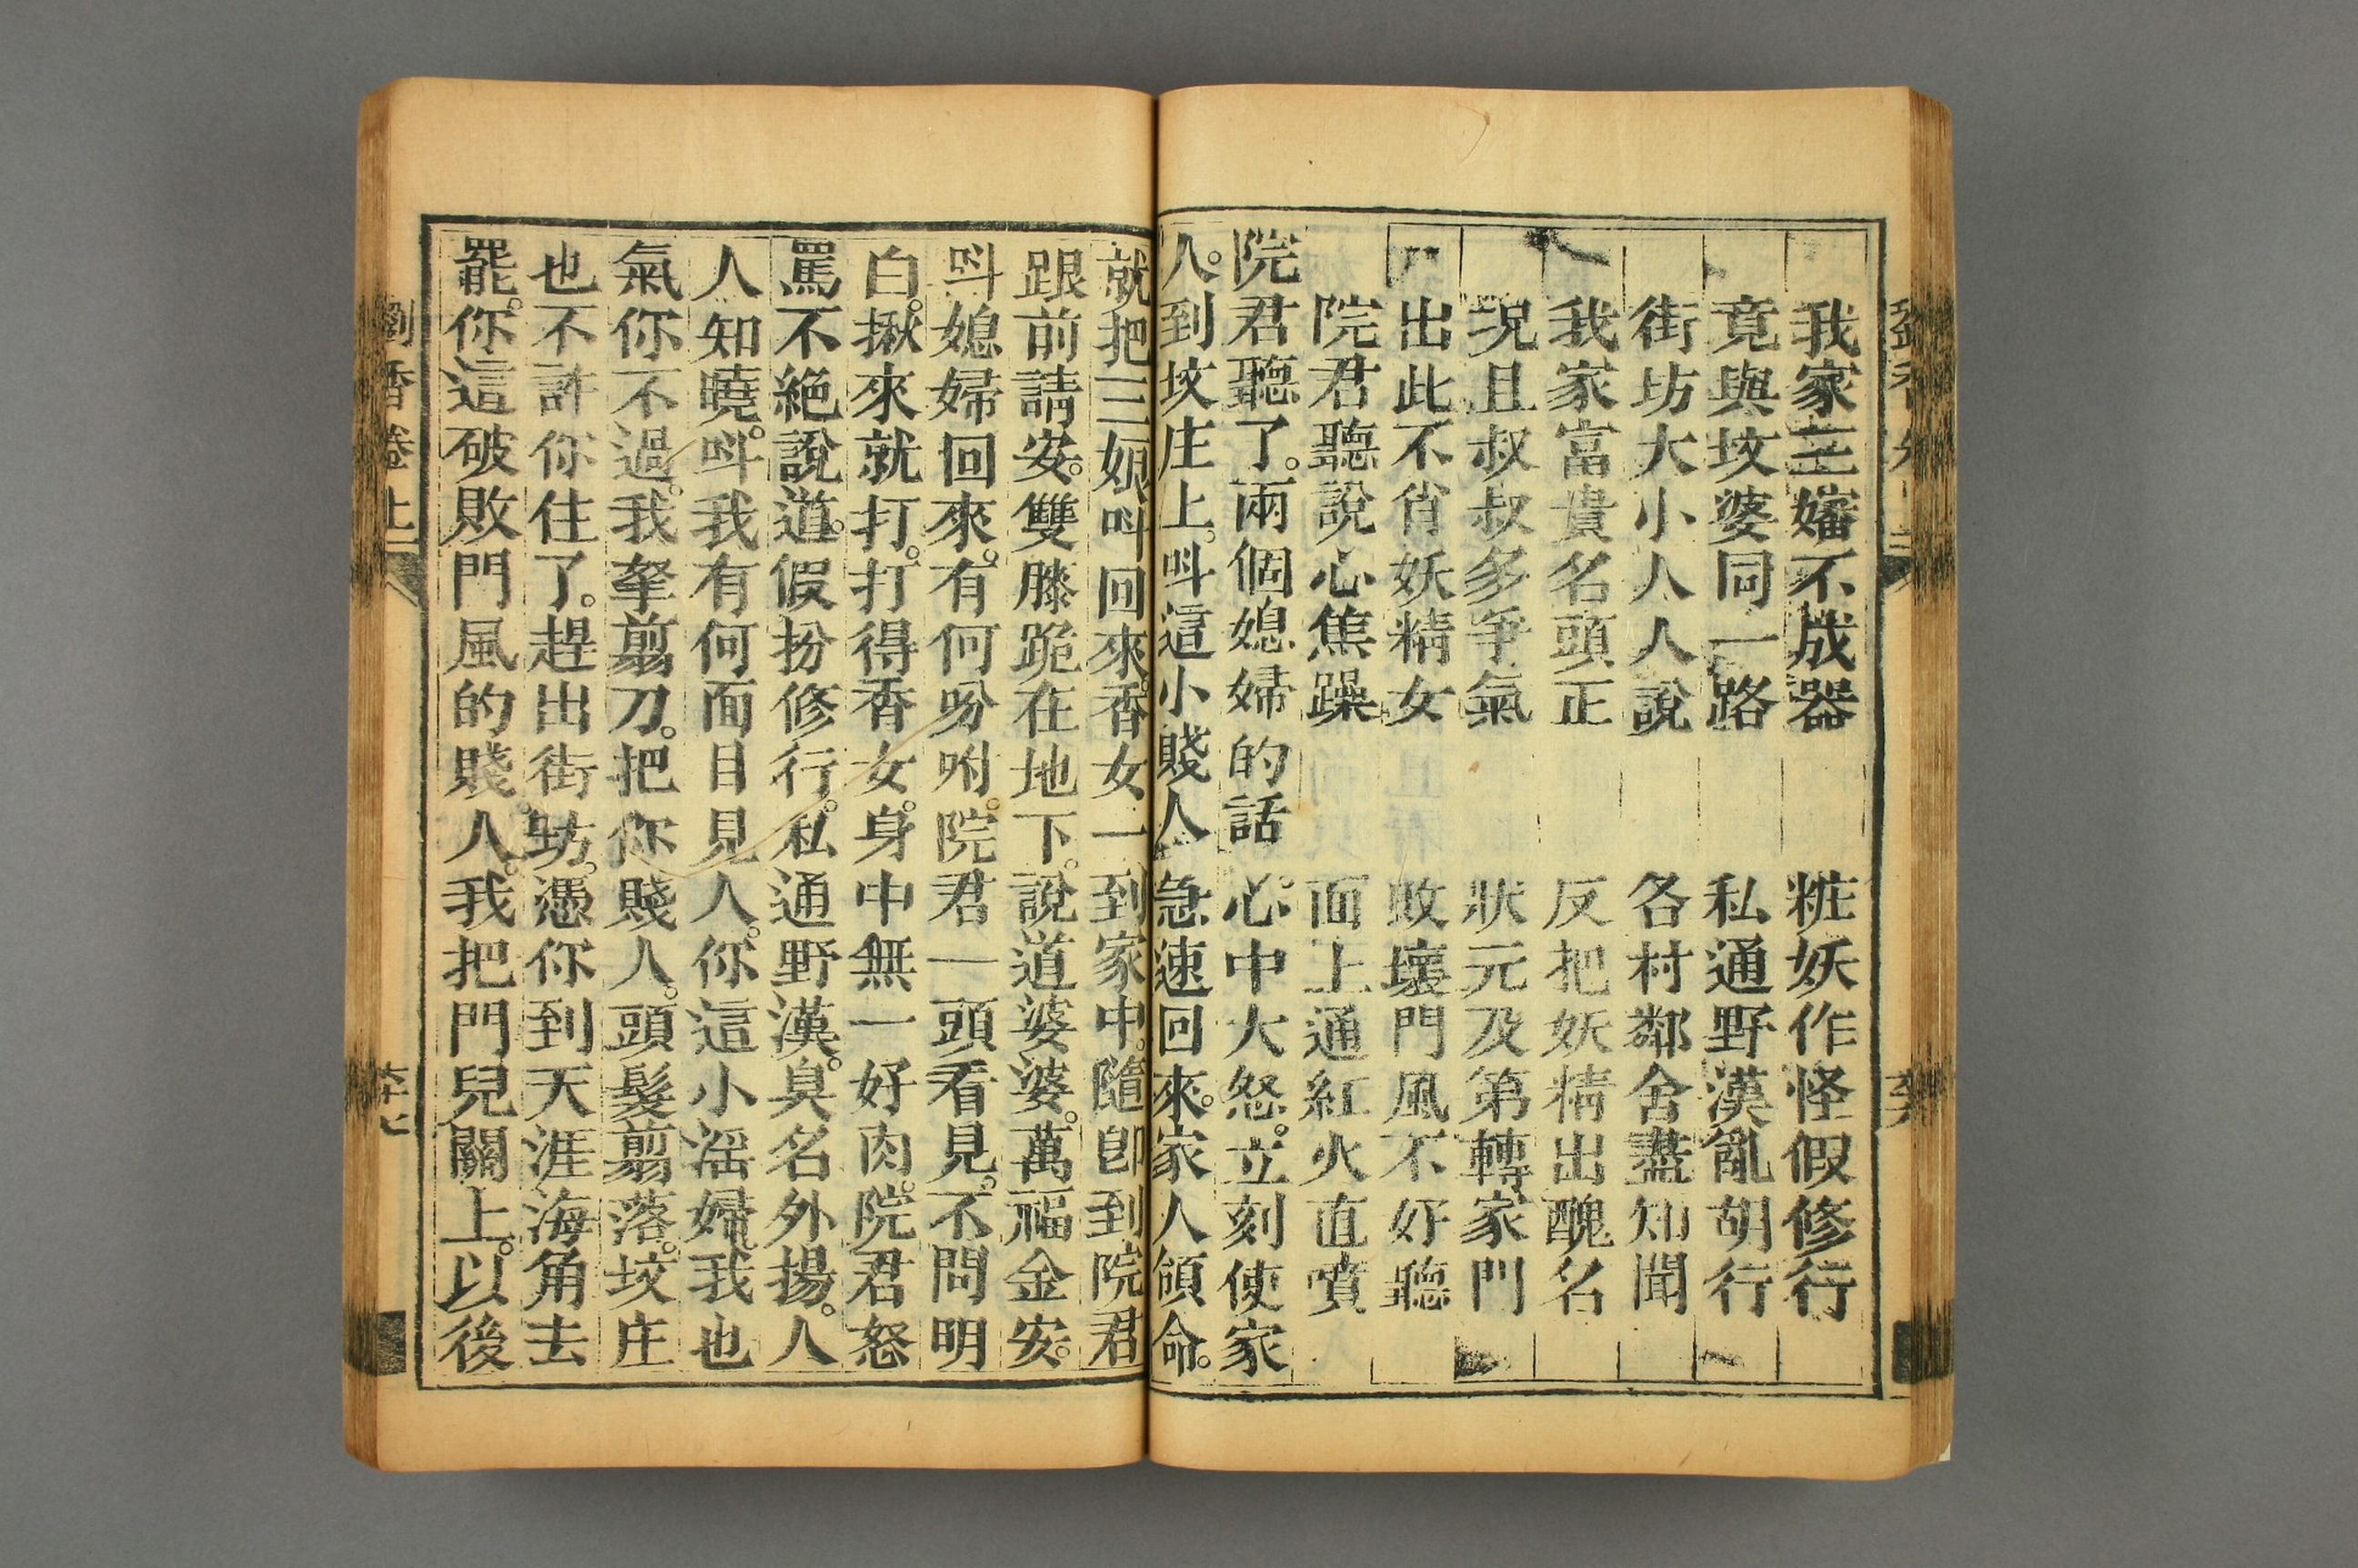 我家三嬸不成器　粧妖作怪假修行
竟與坟婆同一路　私通野漢亂胡行
街坊大小人人說　各村鄰舍盡知聞
我家富貴名頭正　反把妖精出醜名
况且叔叔多爭氣　狀元及第轉家門
出此不肖妖精女　敗壞門風不好聽
院君聽說心焦躁　面上通紅火直噴
院君聽了。兩個媳婦的話。心中大怒。立刻使家
人。到坟庄上。呌這小賤人。急速回來。家人領命。
就把三娘呌回來。香女一到家中。隨卽到院君
跟前請安。雙膝跪在地下。說道婆婆。萬福金安。
呌媳婦回來。有何吩咐。院君一頭看見。不問明
白。揪來就打。打得香女。身中無一好肉。院君怒
罵不絕說道。假扮修行。私通野漢。臭名外揚。人
人知曉。呌我有何面目見人。你這小淫婦。我也
氣你不過。我拏剪刀。把你賤人。頭髮剪落。坟庄
也不許你住了。趕出街坊。憑你到天涯海角去
罷。你這破敗門風的賤人。我把門兒關上。以後
劉香卷上